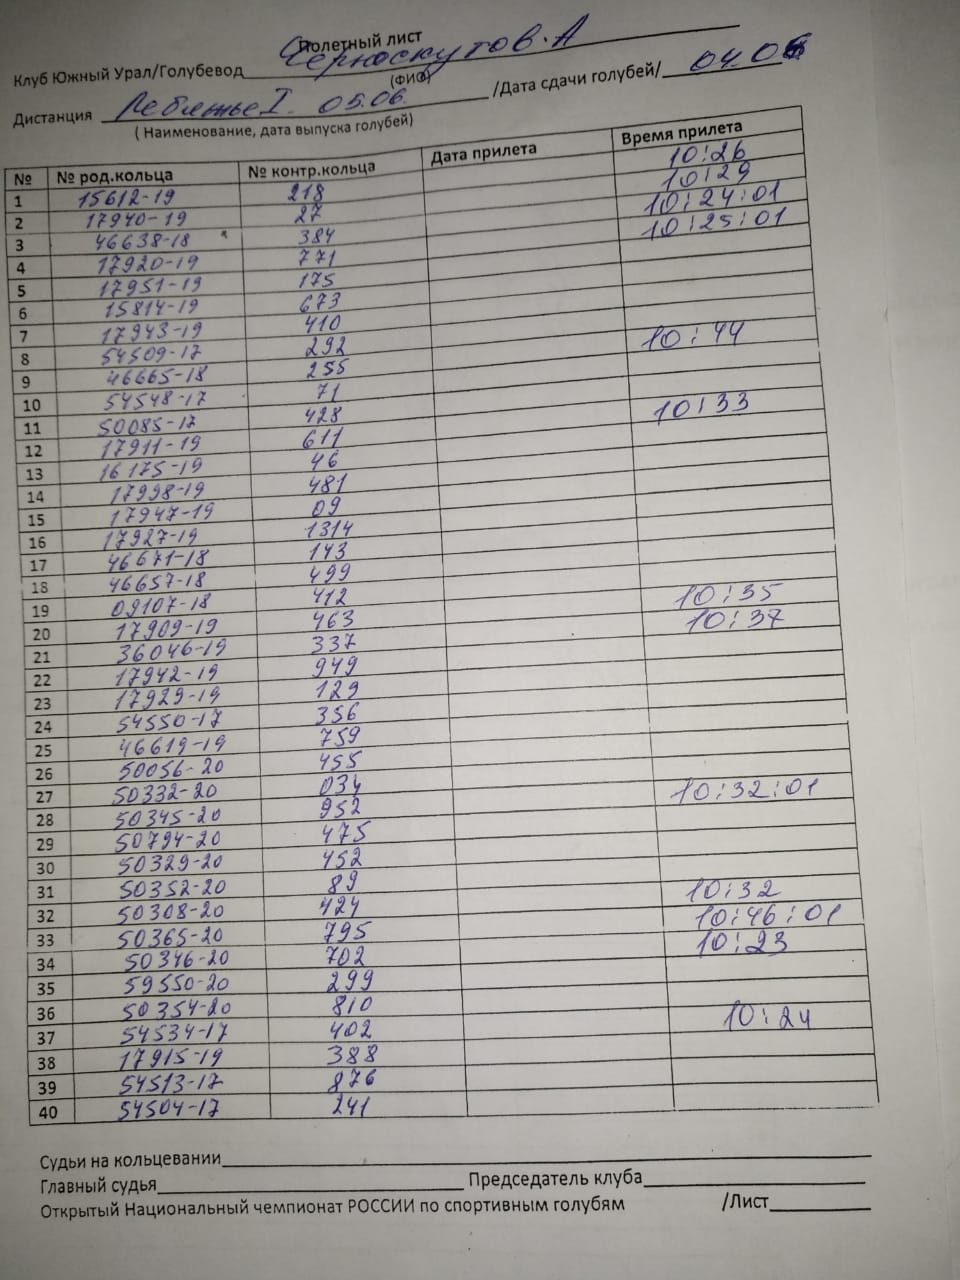 Полетный лист
Клуб Южный Урал/Голубевод Черноскутов.А
(ФИО)
Дистанция Лебяжье I. 05.06. /Дата сдачи голубей/ 04.06
( Наименование, дата выпуска голубей)
№ № род.кольца № контр.кольца Дата прилета Время прилета
1 15612-19 218 10:26
2 17940-19 27 10:29
3 46638-18 384 10:24:01
4 17920-19 771 10:25:01
5 17951-19 175
6 15814-19 673
7 17943-19 410
8 54509-17 292
9 46665-18 255 10:44
10 54548-17 71
11 50085-17 428
12 17911-19 611 10:33
13 16175-19 46
14 17998-19 481
15 17947-19 09
16 17927-19 1314
17 46671-18 143
18 46657-18 499
19 09107-18 412
20 17909-19 463 10:35
21 36046-19 337 10:37
22 17942-19 949
23 17929-19 129
24 54550-17 356
25 46619-19 759
26 50056-20 455
27 50332-20 034
28 50345-20 952 10:32:01
29 50794-20 475
30 50329-20 452
31 50352-20 89
32 50308-20 424 10:32
33 50365-20 795 10:46:01
34 50346-20 702 10:23
35 59550-20 299
36 50354-20 810
37 54534-17 402 10:24
38 17915-19 388
39 54513-17 876
40 54504-17 241
Судьи на кольцевании
Главный судья Председатель клуба
Открытый Национальный чемпионат РОССИИ по спортивным голубям /Лист